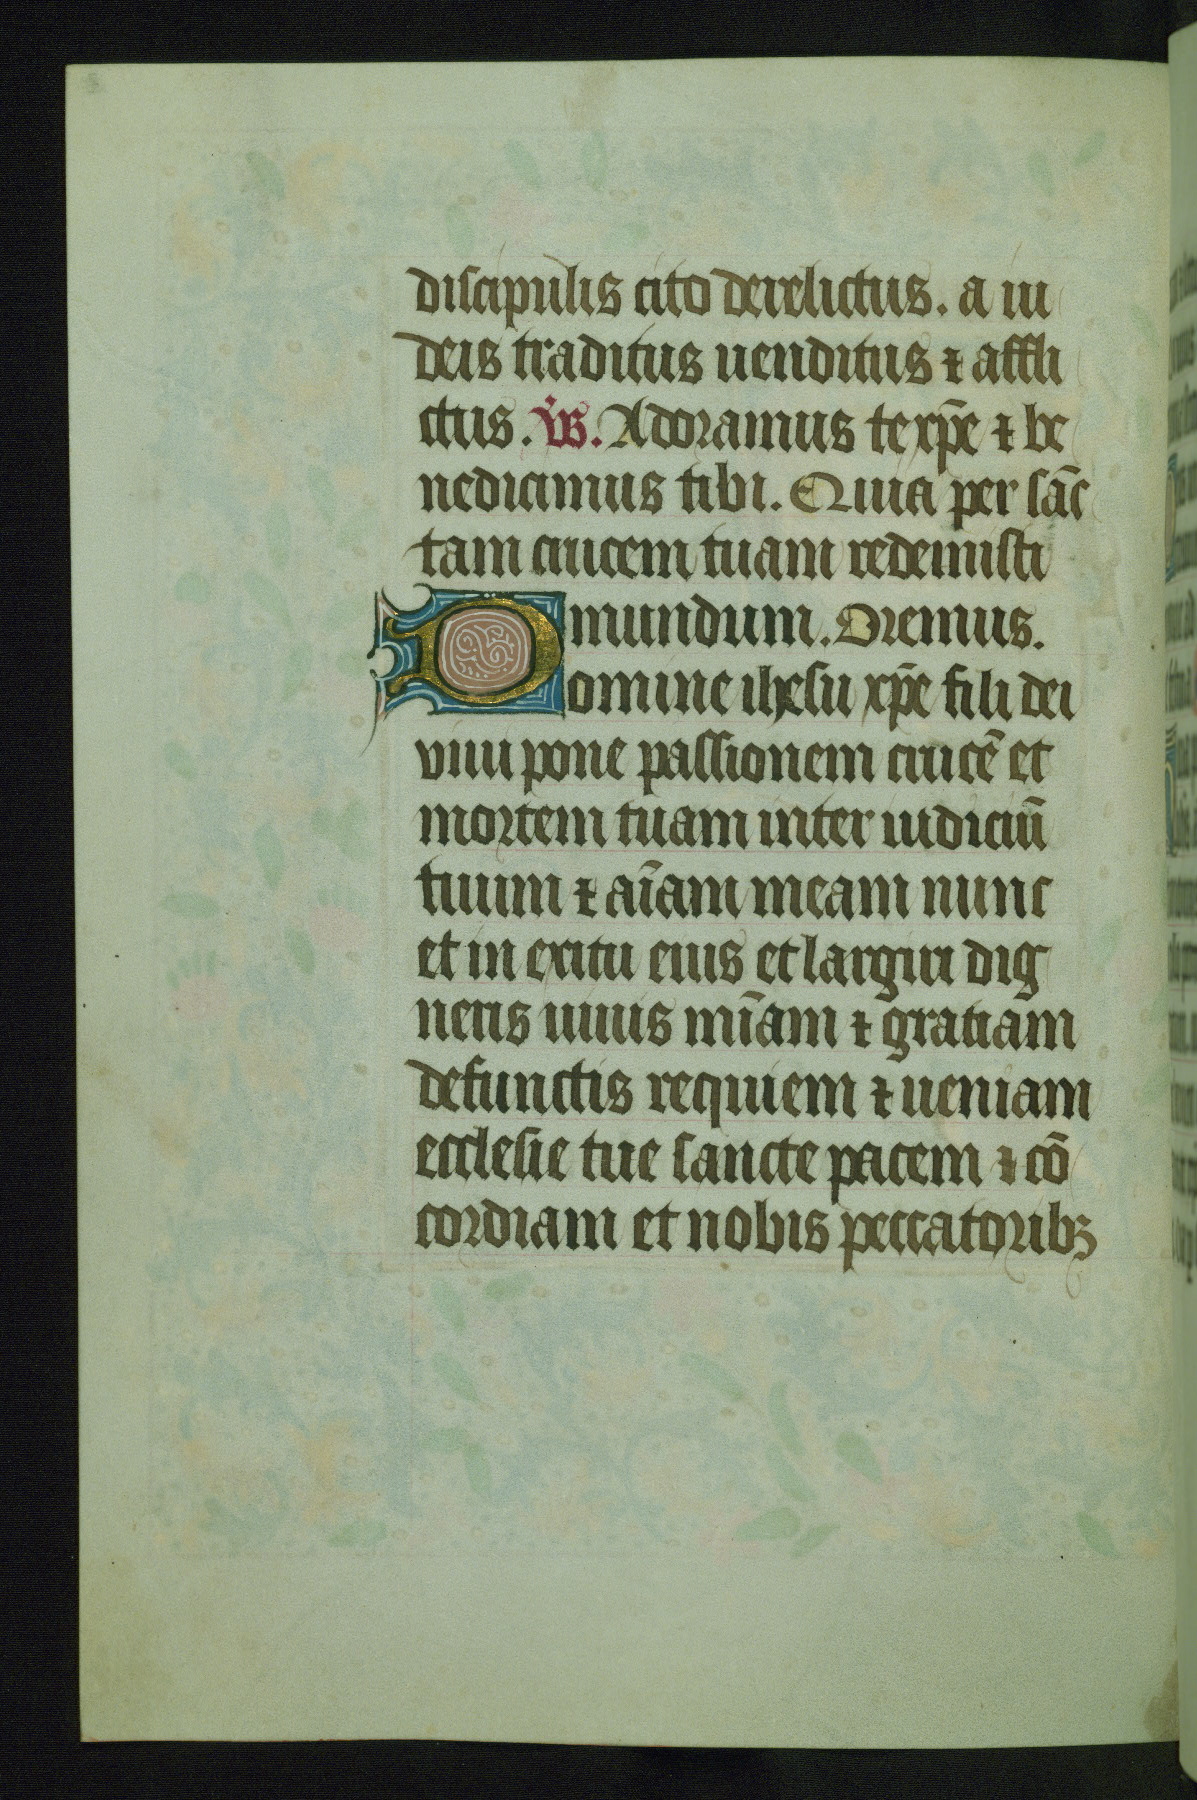 discipulis cito derelictus. a iu
deis traditus uenditus ⁊ affli
ctus. V̇s. Adoramus te xp̄e ⁊ be
nedicimus tibi. Quia per sāc
tam crucem tuam redemisti
mundum. Oremus.
Domine ihesu xp̄e fili dei
viui pone passionem crucē et
mortem tuam inter iudiciū
tuum ⁊ aīam meam nunc
et in exitu eius et largiri dig
neris uiuis mīam ⁊ gratiam
defunctis requiem ⁊ ueniam
ecclesie tue sancte pacem ⁊ cō
cordiam et nobis peccatoribꝫ